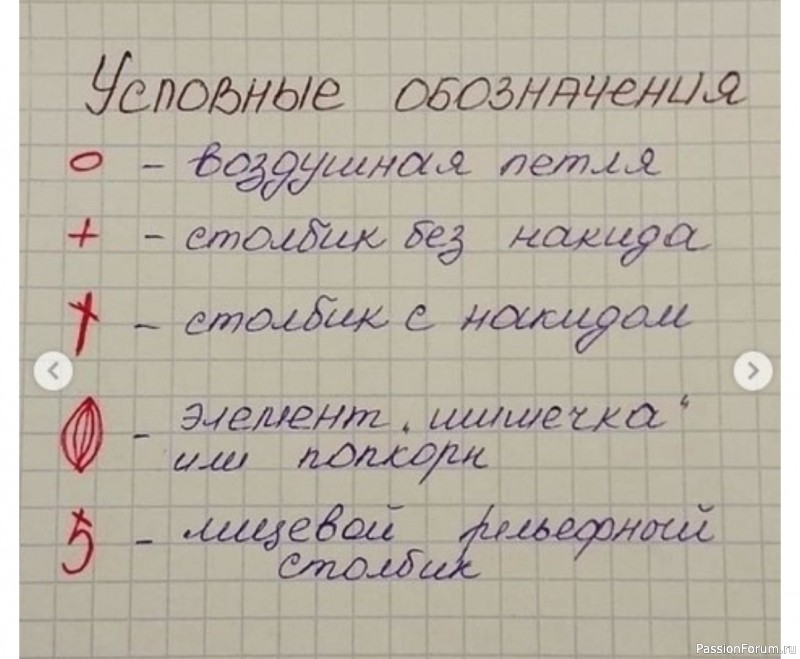 Условные обозначения
о - воздушная петля
+ - столбик без накида
† - столбик с накидом
- элемент „шишечка“
или попкорн
5 - лицевой рельефный
столбик
PassionForum.ru